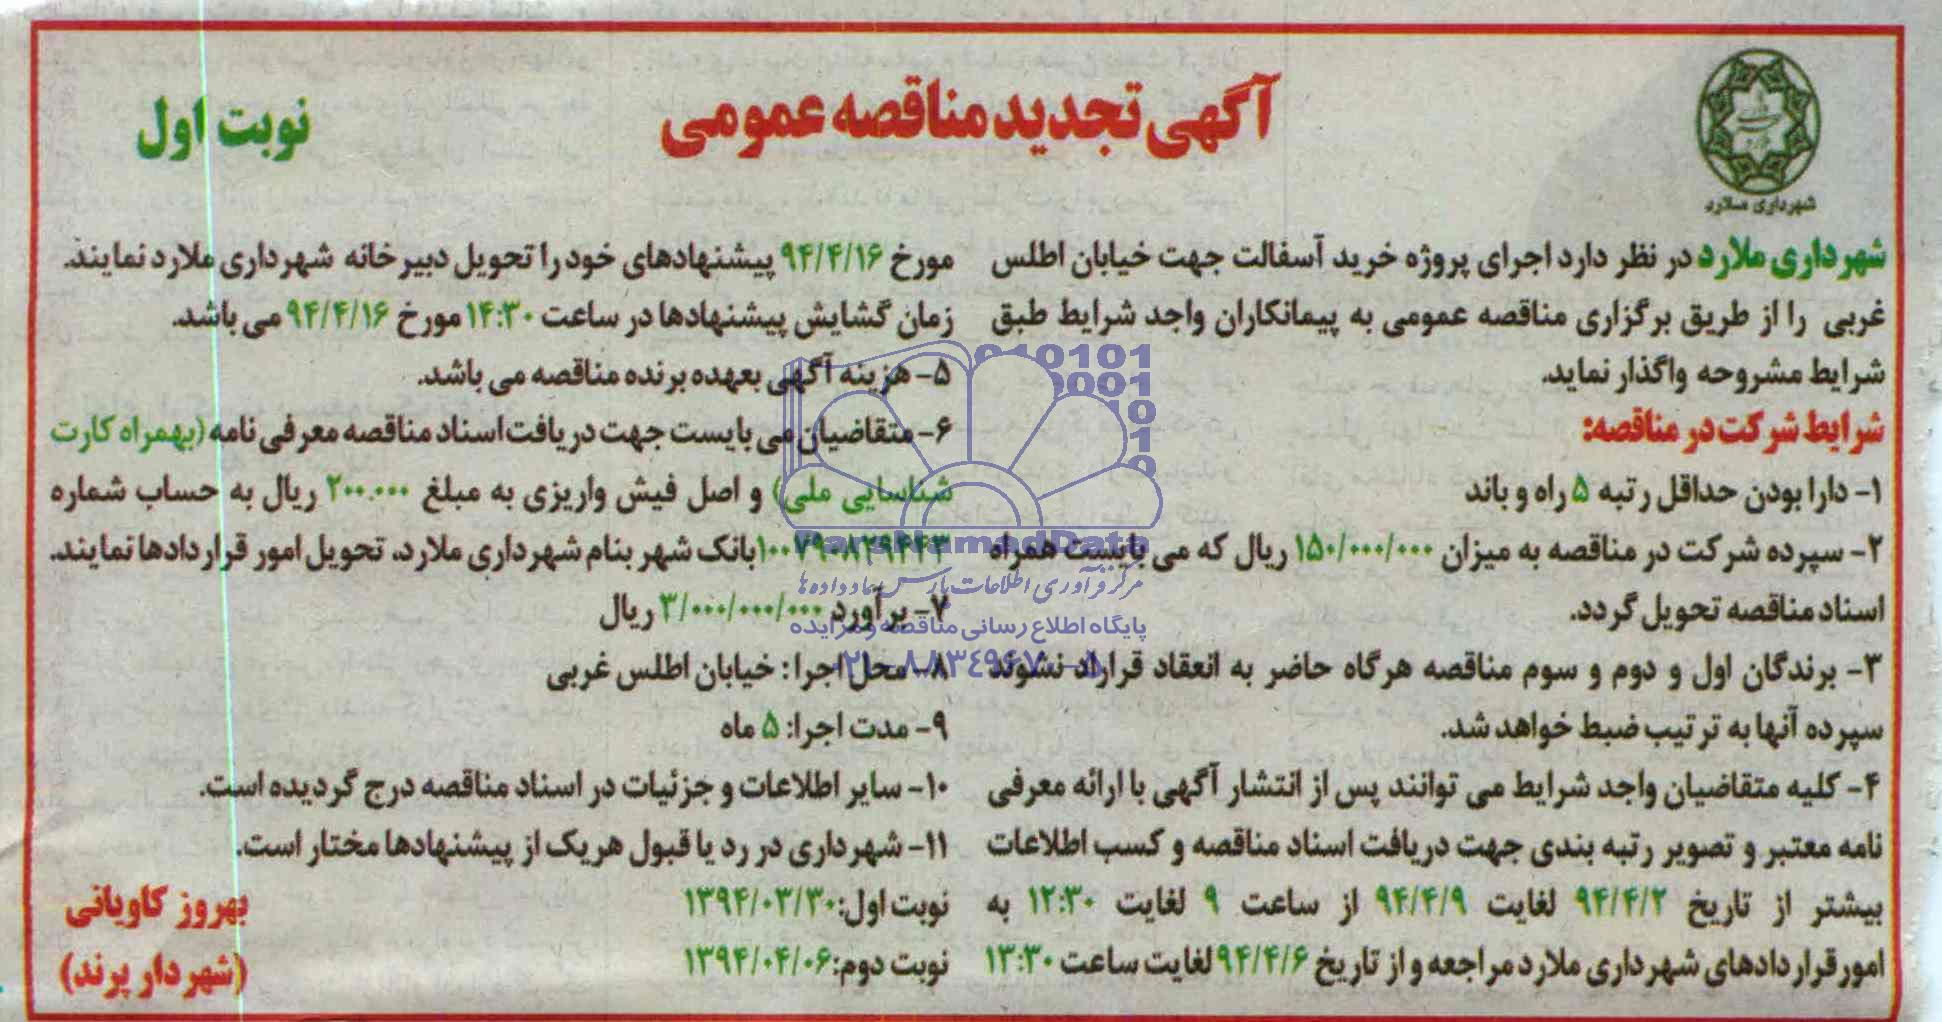 آگهی تجدید مناقصه عمومی
نوبت اول
شهرداری ملارد
شهرداری ملارد در نظر دارد اجرای پروژه خرید آسفالت جهت خیابان اطلس
غربی را از طریق برگزاری مناقصه عمومی به پیمانکاران واجد شرایط طبق
شرایط مشروحه واگذار نماید.
شرایط شرکت در مناقصه:
۱- دارا بودن حداقل رتبه ۵ راه و باند
۲- سپرده شرکت در مناقصه به میزان ۱۵۰/۰۰۰/۰۰۰ ریال که می بایست همراه
اسناد مناقصه تحویل گردد.
۳- برندگان اول و دوم و سوم مناقصه هرگاه حاضر به انعقاد قراراد نشوند
سپرده آنها به ترتیب ضبط خواهد شد.
۴- کلیه متقاضیان واجد شرایط می توانند پس از انتشار آگهی با ارائه معرفی
نامه معتبر و تصویر رتبه بندی جهت دریافت اسناد مناقصه و کسب اطلاعات
بیشتر از تاریخ ۹۴/۴/۲ لغایت ۹۴/۴/۹ از ساعت ۹ لغایت ۱۲:۳۰ به
امور قراردادهای شهرداری ملارد مراجعه و از تاریخ ۹۴/۴/۶ لغایت ساعت ۱۳:۳۰
مورخ ۹۴/۴/۱۶ پیشنهادهای خود را تحویل دبیرخانه شهرداری ملارد نمایند.
زمان گشایش پیشنهادها در ساعت ۱۴:۳۰ مورخ ۹۴/۴/۱۶ می باشد.
۵- هزینه آگهی بعهده برنده مناقصه می باشد.
۶- متقاضیان می بایست جهت دریافت اسناد مناقصه معرفی نامه (بهمراه کارت
شناسایی ملی) و اصل فیش واریزی به مبلغ ۲۰۰.۰۰۰ ریال به حساب شماره
۱۰۰۷۹۰۸۲۹۴۴۳ بانک شهر بنام شهرداری ملارد، تحویل امور قراردادها نمایند.
۷- برآورد ۳/۰۰۰/۰۰۰/۰۰۰ ریال
۸- محل اجرا: خیابان اطلس غربی
۹- مدت اجرا: ۵ ماه
۱۰- سایر اطلاعات و جزئیات در اسناد مناقصه درج گردیده است.
۱۱- شهرداری در رد یا قبول هریک از پیشنهادها مختار است.
نوبت اول: ۱۳۹۴/۰۳/۳۰
نوبت دوم: ۱۳۹۴/۰۴/۰۶
بهروز کاویانی
(شهردار پرند)
ParsNamadData
مرکز فرآوری اطلاعات پارس نماد داده ها
پایگاه اطلاع رسانی مناقصه و مزایده
۰۲۱-۸۸۳۴۹۶۷۰-۸